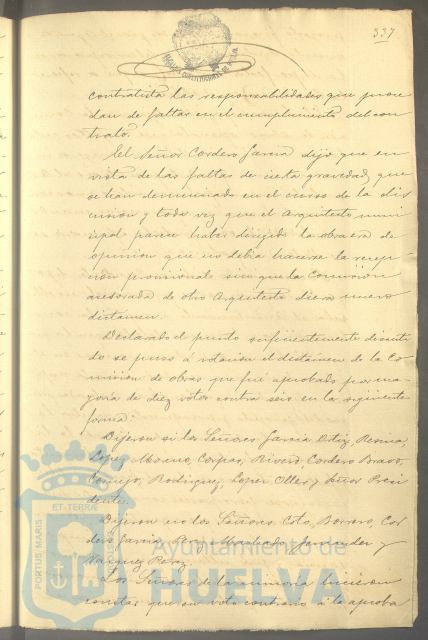 337
contratista las responsabilidades que proce
dan de faltas en el cumplimiento del con
trato.
El Señor Cordero García dijo que en
vista de las faltas de cierta gravedad que
se han denunciado en el curso de la dis
cusión y toda vez que el Arquitecto muni
cipal parece haber dirigido la obra era de
opinión que no debía hacerse la recep-
ción provisional sino que la Comisión
asesorada de otro Arquitecto diera nuevo
dictamen.
Declarado el punto suficientemente discuti
do se puso á votación el dictamen de la Co
misión de obras que fué aprobado por ma
yoría de diez votos contra seis en la siguiente
forma:
Dijeron si los Señores García Ortiz,
López Moreno, Rivero, Cordero Bravo,
Cornejo, Rodriguez, Lopez Oller y Señor Presi
dente.
Dijeron no los Señores Coto, Borrero, Cor
dero García, Machado, y
Vazquez Perez.
Los Señores de la minoría hicieron
constar que su voto contrario á la aproba
PORTUS MARIS
ET TERRÆ
Ayuntamiento de
HUELVA